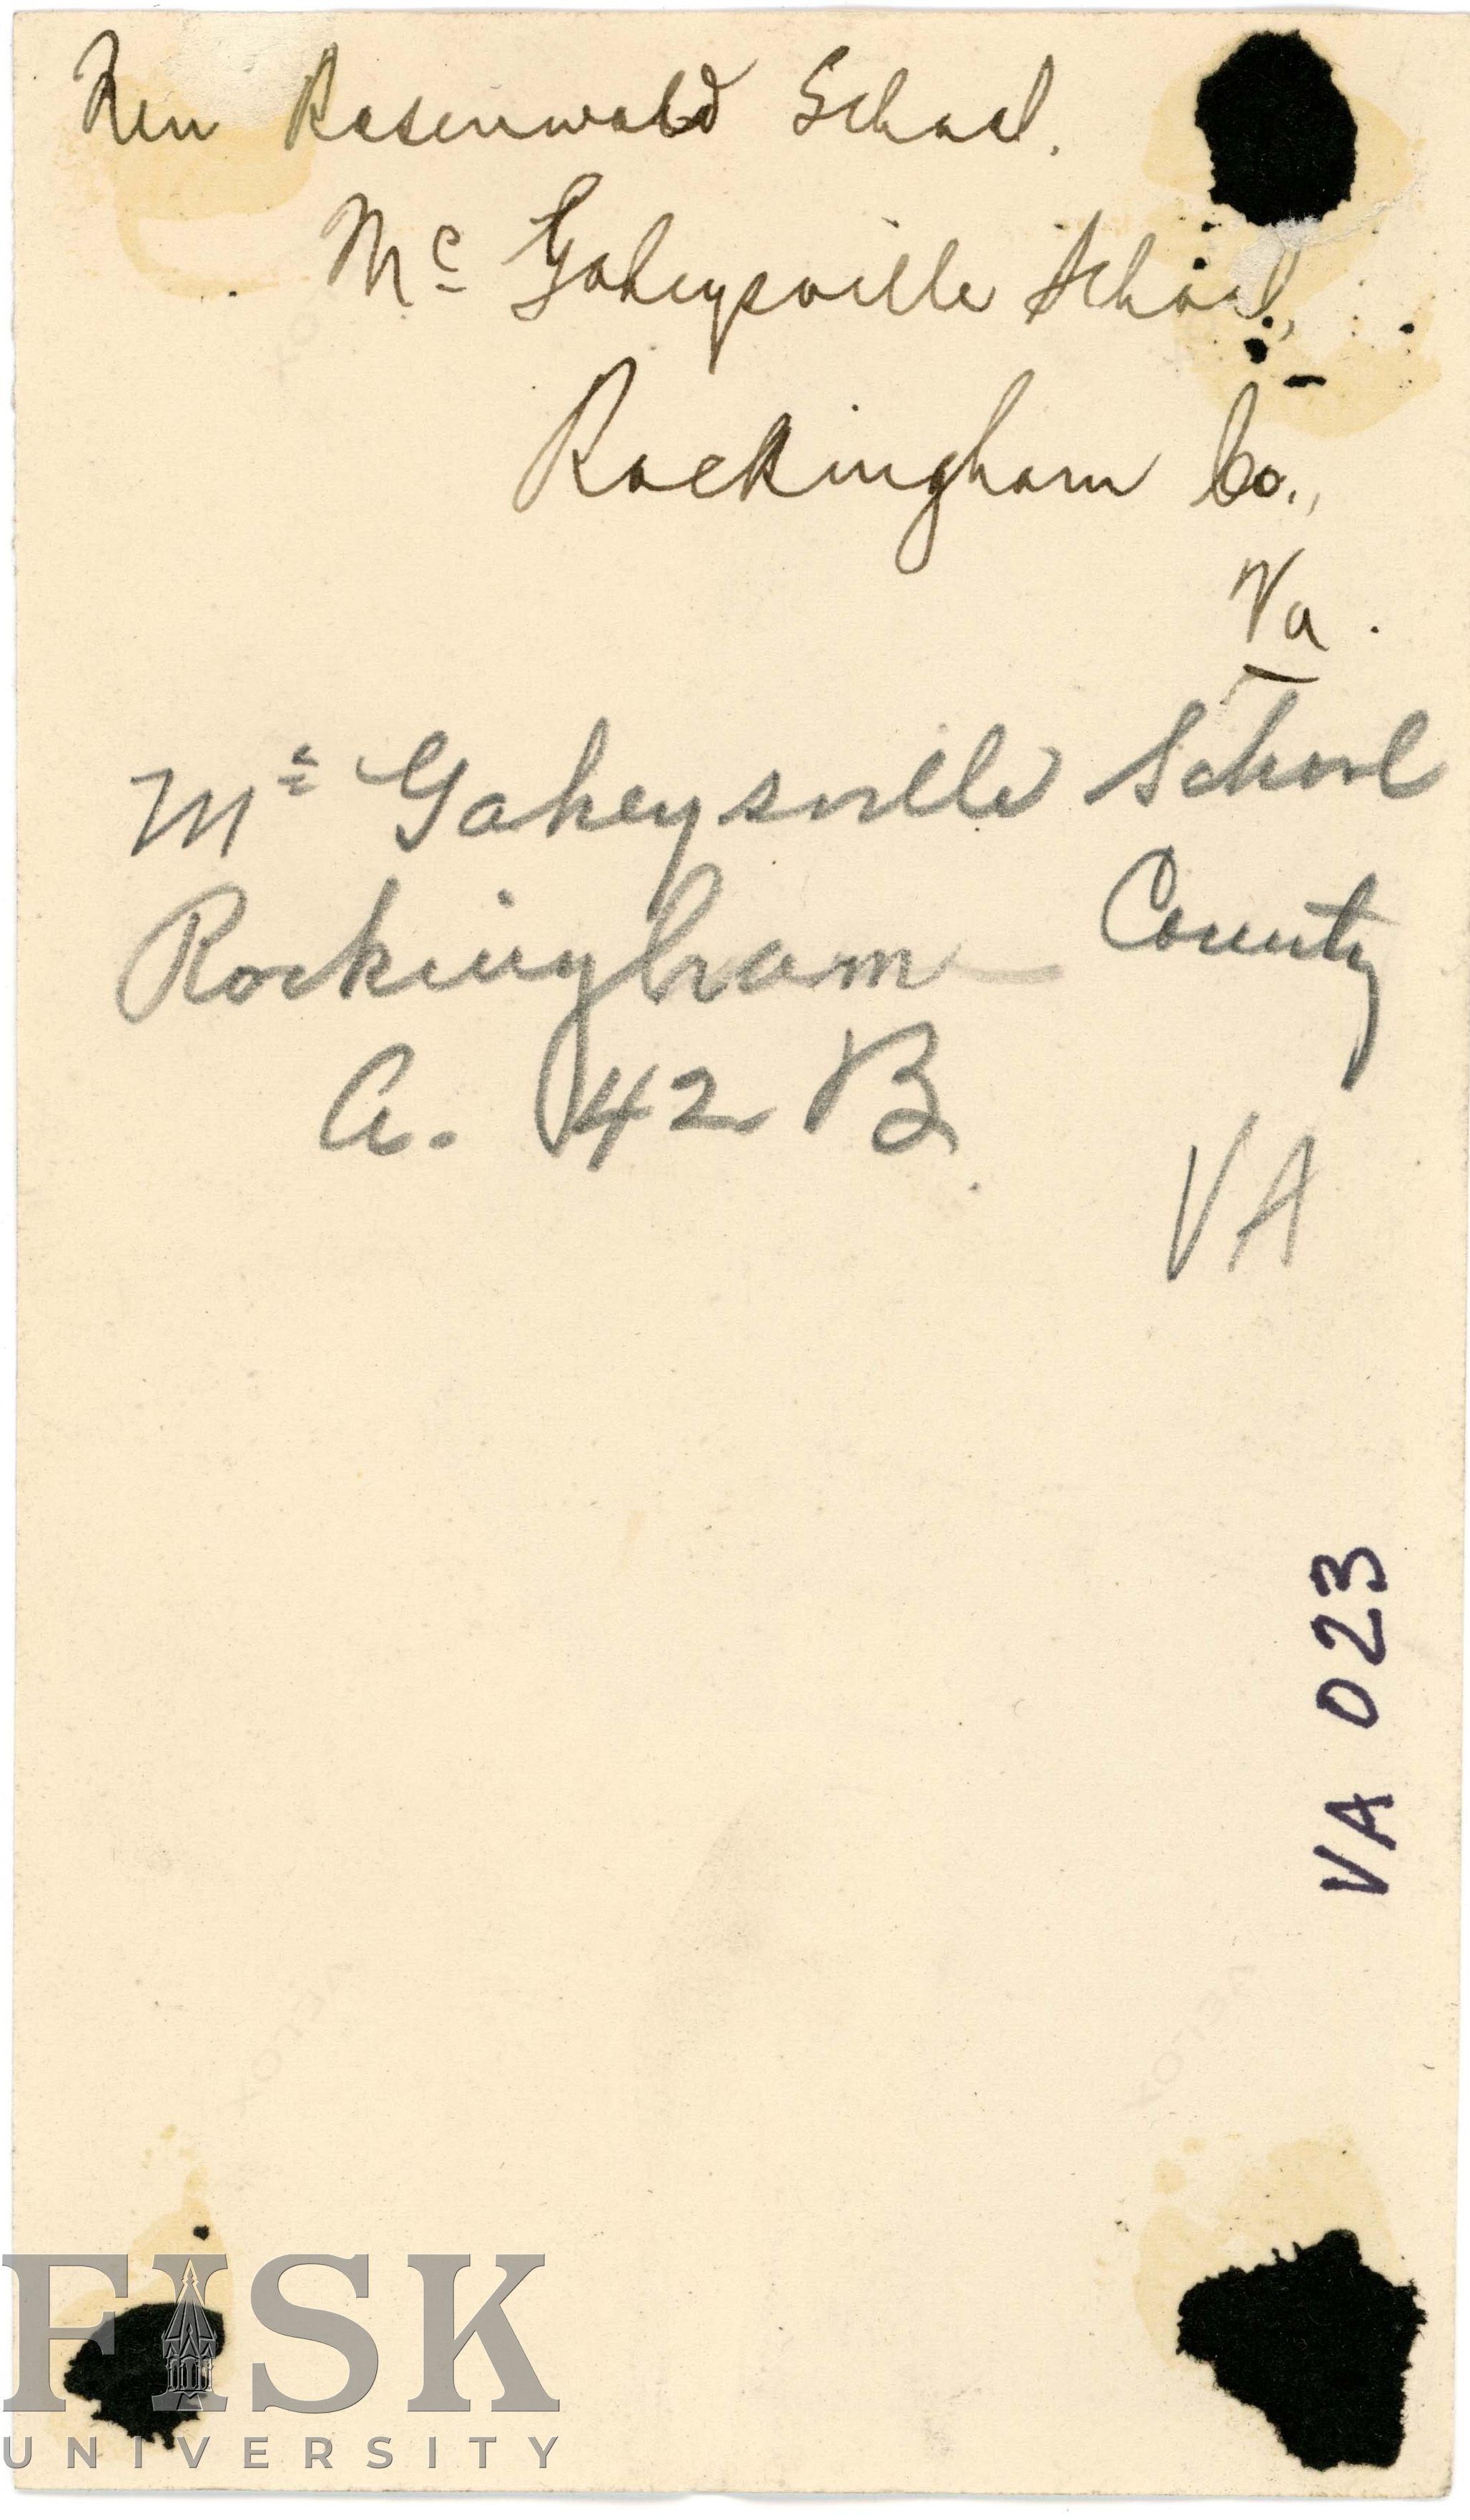 New Rosenwald School.
Mc Gaheysville School,
Rockingham Co.,
Va.
Mc Gaheysville School
Rockingham County
A. 42 B
VA
VA 023
VELOX
VELOX
FISK
UNIVERSITY